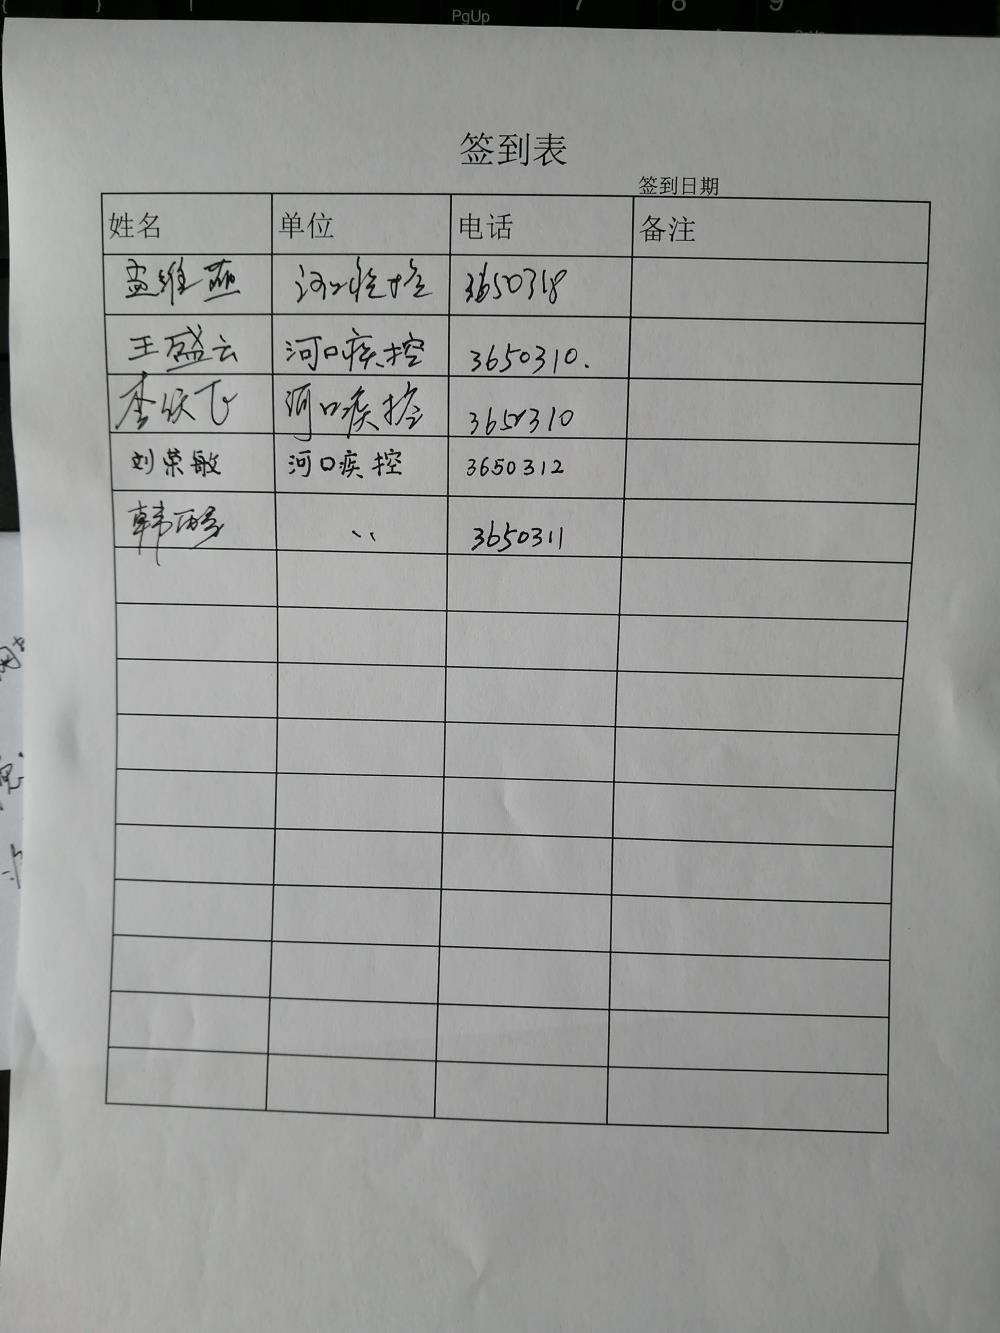 PgUp
7 8 9
签到表
签到日期
姓名 单位 电话 备注
孟维丽 河口疾控 3650318
王盛云 河口疾控 3650310.
李欣飞 河口疾控 3650310
刘荣敏 河口疾控 3650312
韩 、、 3650311